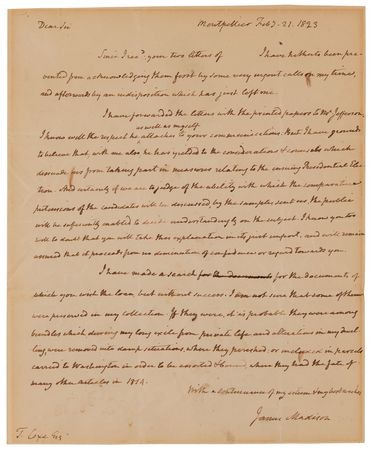 Dear Sir Montpellier Feby. 21. 1823
Since I recd. your two letters of I have hitherto been pre-
vented from acknowledging them first by some very urgent calls on my time,
and afterwards by an indisposition which has just left me.
I have forwarded the letters with the printed papers to Mr Jefferson.
as well as myself
I know well the respect he attaches to your communications. But I have ground
to believe that, with me also, he has yielded to the considerations & counsels which
dissuade us from taking part in measures relating to the ensuing Presidential Elec-
tion. And certainly if we are to judge of the ability with which the comparative
pretensions of the candidates will be discussed by the samples sent us the public
will be sufficiently enabled to decide understandingly on the subject. I know you too
well to doubt that you will take this explanation in its just import, and will remain
assured that it proceeds from no diminution of confidence or regard towards you.
I have made a search for the documents for the documents, of
which you wish the loan, but without success. I am not sure that some of them
were preserved in my collection. If they were, it is probable they were among
bundles which during my long exile from private life and alterations in my dwel
ling, were removed into damp situations, where they perished, or included in parcels
carried to Washington in order to be assorted & bound, where they had the fate of
many other articles in 1814.
With a continuance of my esteem & my best wishes
James Madison
T. Coxe Esqr